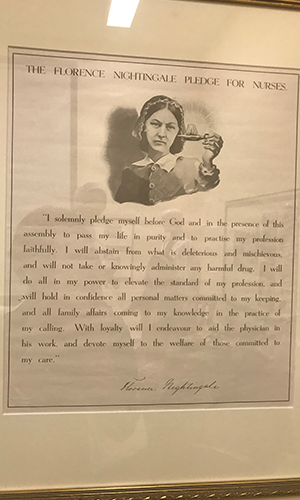 THE FLORENCE NIGHTINGALE PLEDGE FOR NURSES.
"I solemnly pledge myself before God and in the presence of this
assembly to pass my life in purity and to practise my profession
faithfully. I will abstain from what is deleterious and mischievous,
and will not take or knowingly administer any harmful drug. I will
do all in my power to elevate the standard of my profession, and
will hold in confidence all personal matters committed to my keeping,
and all family affairs coming to my knowledge in the practice of
my calling. With loyalty will I endeavour to aid the physician in
his work, and devote myself to the welfare of those committed to
my care."
Florence Nightingale